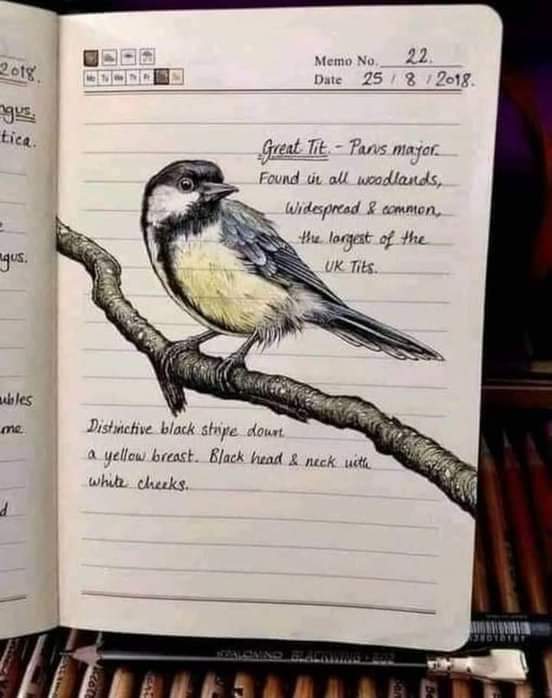 2018.
ngus.
tica.
gus.
ubles
me
d
Memo No. 22.
Date 25 / 8 / 2018.
Mo Tu We Th Fr
Great Tit. - Parus major.
Found in all woodlands,
Widespread & common,
the largest of the
UK Tits.
Distinctive black stripe down
a yellow breast. Black head & neck with
white cheeks.
PALOMINO BLACKWING - 602